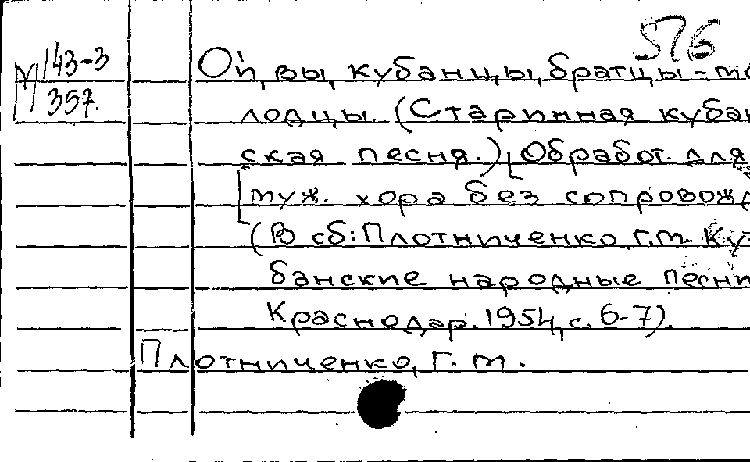 576
М 143-3
357.
Ой, вы, кубанцы, братцы-мо
лодцы. (Старинная кубан
ская песня.) [Обработ. для
муж. хора без сопровожд
(В сб: Плотниченко, Г.М. Ку-
банские народные песни
Краснодар. 1954, с. 6-7).
Плотниченко, Г. М.